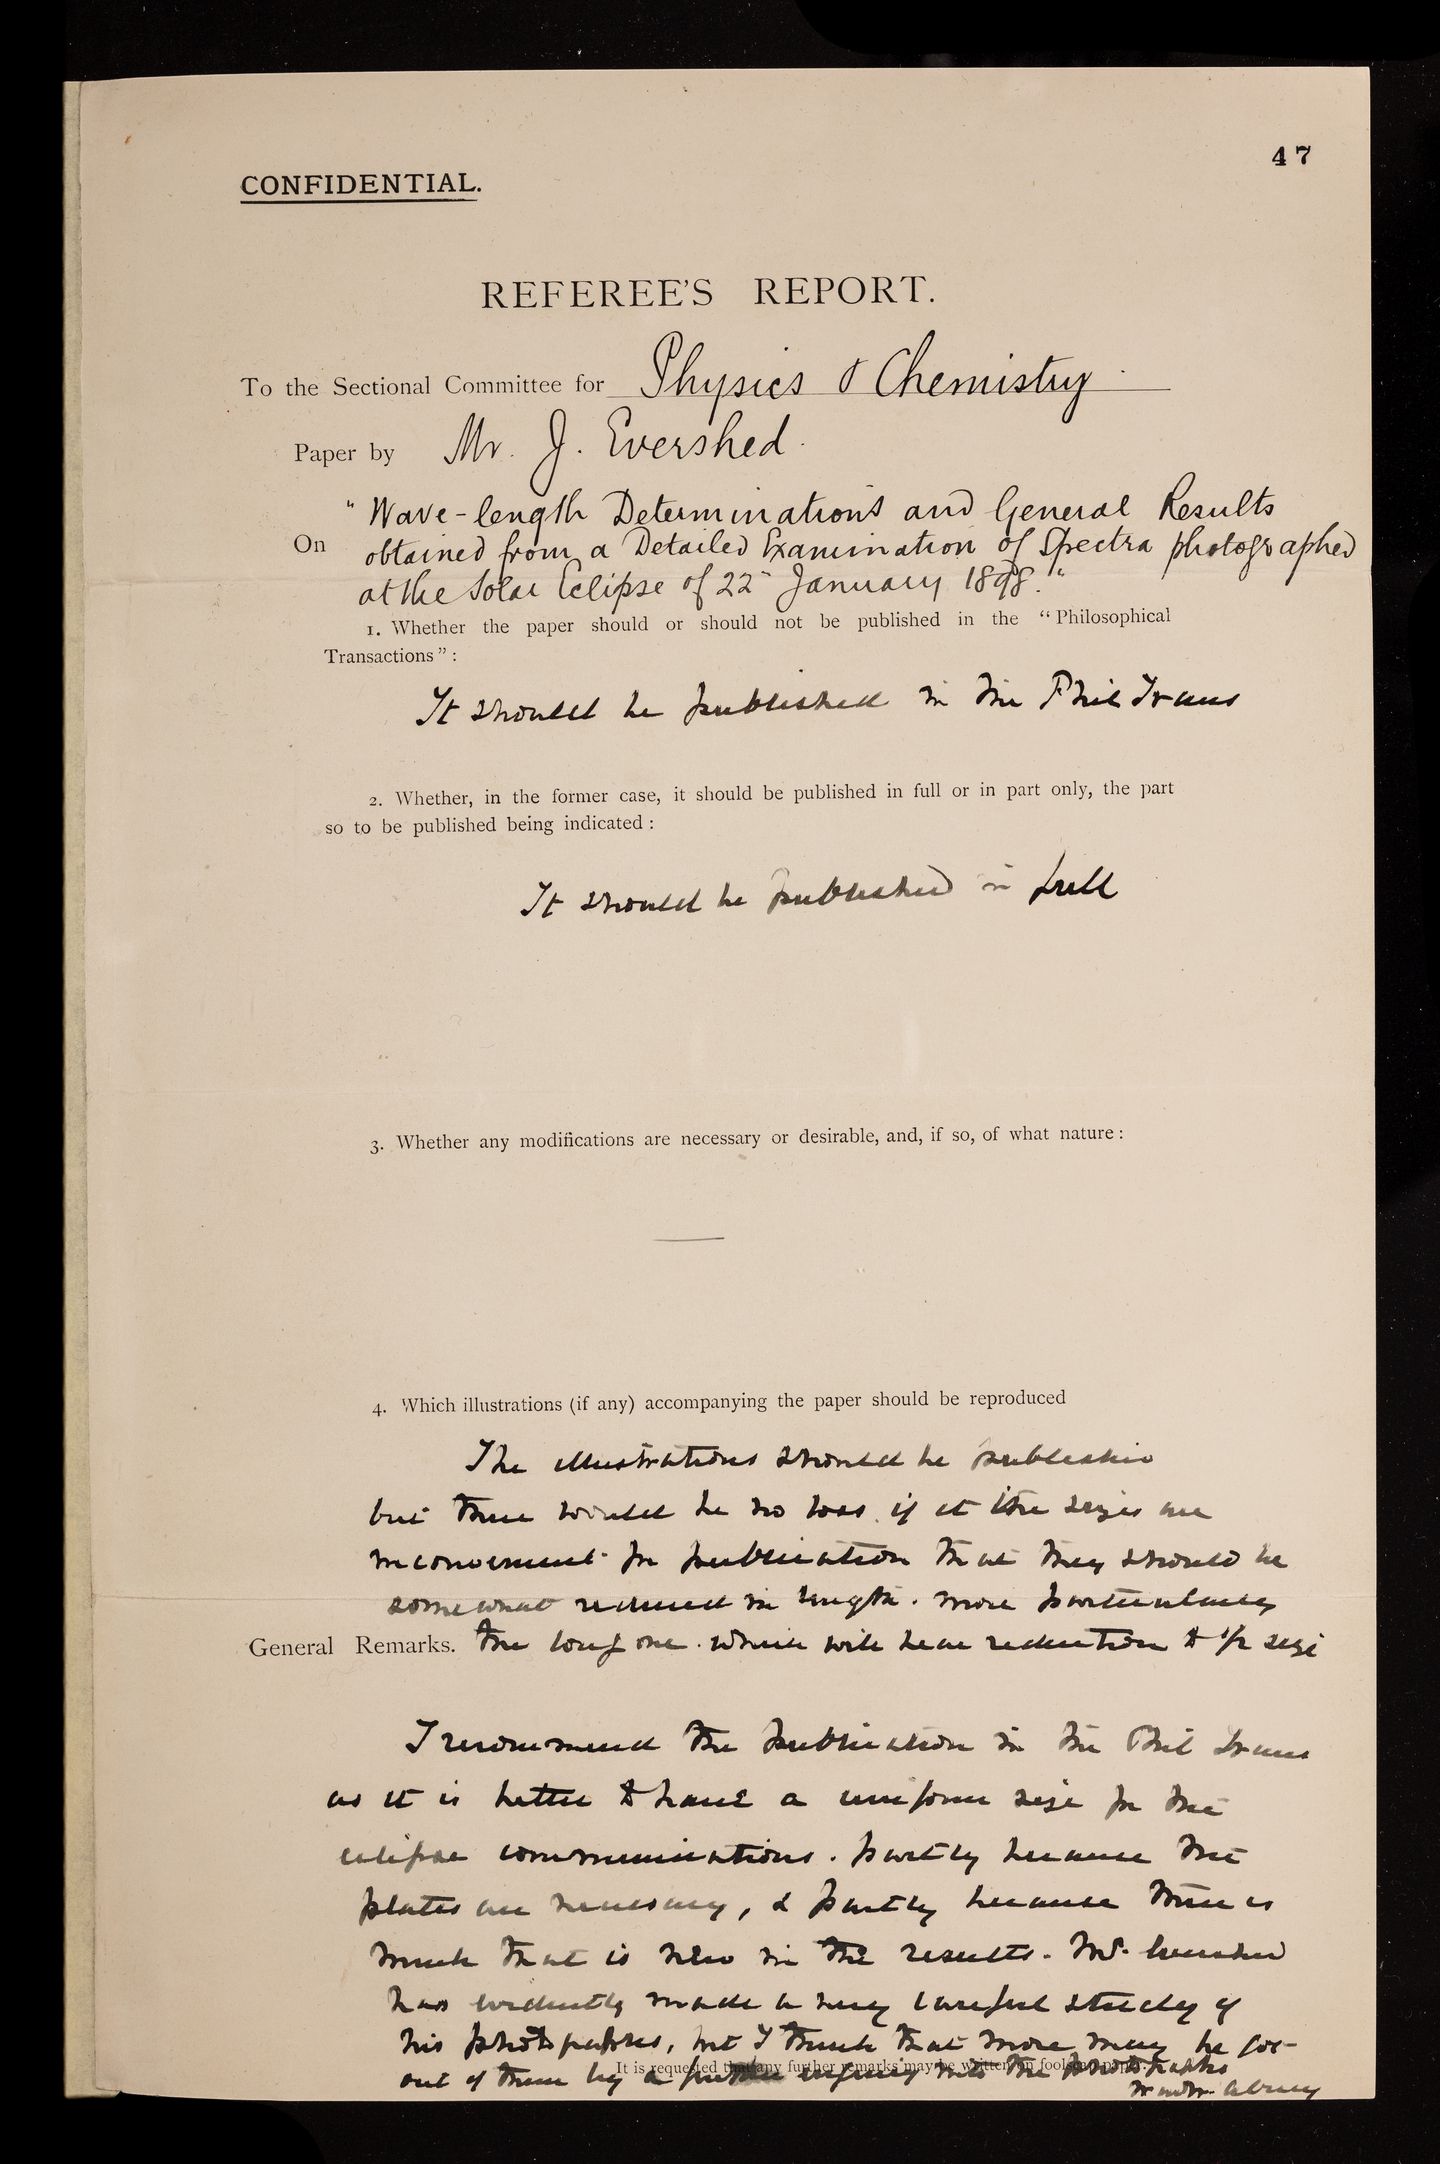 47
CONFIDENTIAL.
REFEREE'S REPORT.
To the Sectional Committee for Physics & Chemistry
Paper by Mr. J. Evershed.
"Wave-length Determinations and General Results
On obtained from a Detailed Examination of Spectra photographed
at the Solar Eclipse of 22 January 1898."
1. Whether the paper should or should not be published in the "Philosophical
Transactions":
It should be published in the Phil Trans
2. Whether, in the former case, it should be published in full or in part only, the part
so to be published being indicated:
It should be published in full
3. Whether any modifications are necessary or desirable, and, if so, of what nature:
4. Which illustrations (if any) accompanying the paper should be reproduced
The illustrations should be published
but there would be no loss if the sizes are
inconvenient for publication that they should be
somewhat reduced in length. more particularly
General Remarks. the long one. which will bear reduction to 1/2 size
I recommend the publication in the Phil Trans
as it is better to have a uniform size for the
eclipse communications. partly because the
plates are necessary, & partly because there is
much that is new in the results. Mr. Evershed
has evidently made a very careful study of
his photographs, but I think that more may be got
out of them by a further inquiry into the photographs
It is requested that any further remarks may be written on foolscap paper.
W de W. Abney